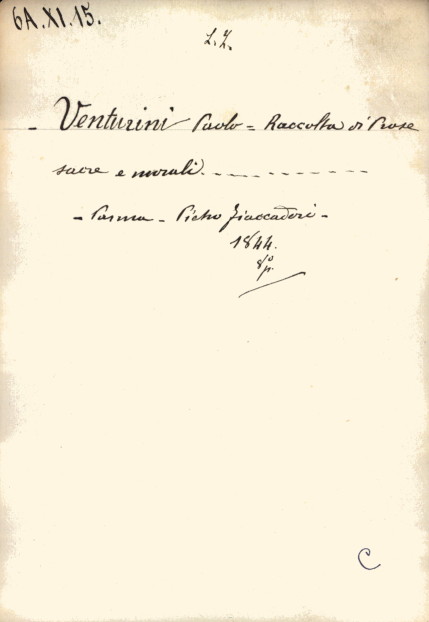 6A.XI.15.
L.I.
- Venturini Paolo = Raccolta di Prose
sacre e morali. - - - - - - - - - - -
- Parma - Pietro Fiaccadori -
1844.
8º p.
C